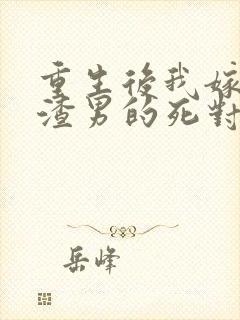 重生後我嫁
渣男的死對
岳峰